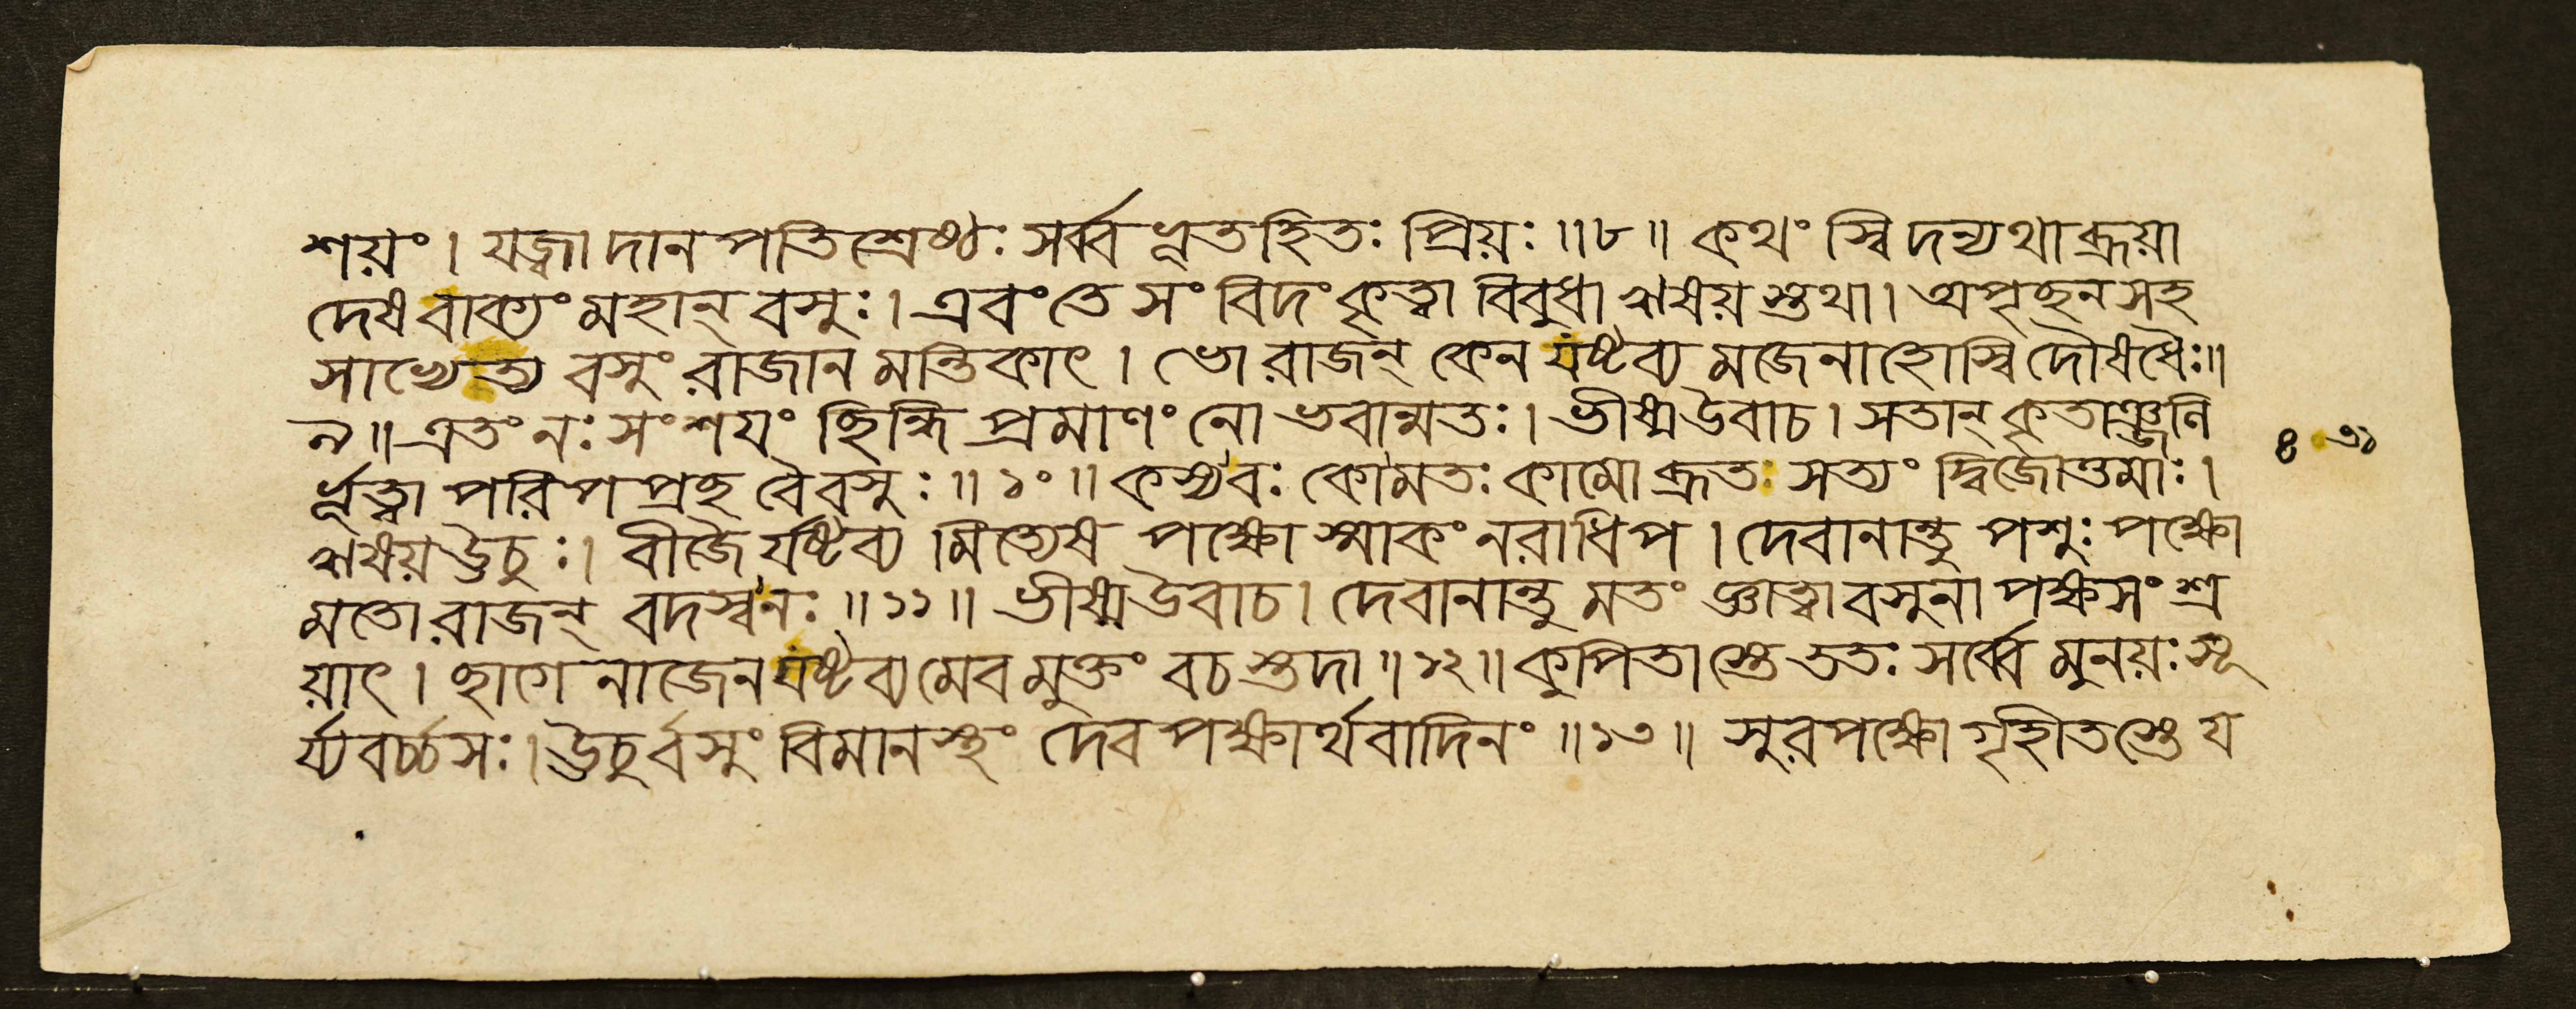 শয়ং। যজ্বা দানপতিশ্রেষ্ঠঃ সর্ব্বভূতহিতঃ প্রিয়ঃ॥৮॥ কথং স্বিদন্যথা ব্রূয়া
দেষ বাক্যং মহান্ বসুঃ। এবং তে সংবিদং কৃত্বা বিবুধা ঋষয়স্তথা। অপৃছন সহ
সাভ্যেত্য বসুং রাজানমন্তিকাৎ। ভো রাজন্ কেন যষ্টব্যমজেনাহোস্বিদৌষধৈঃ॥
৯॥ এতং নঃ সংশয়ং ছিন্ধি প্রমাণং নো ভবান্মতঃ। ভীষ্মউবাচ। সতান্ কৃতাঞ্জলি
র্ভূত্বা পরিপপ্রছ বৈ বসুঃ॥১০॥ কস্য বঃ কো মতঃ কামো ব্রূত সত্যং দ্বিজোত্তমাঃ।
ঋষয়উচুঃ। বীজৈর্যষ্টব্যমিত্যেষ পক্ষোস্মাকং নরাধিপ। দেবানান্তু পশুঃ পক্ষো
মতো রাজন্ বদস্ব নঃ॥১১॥ ভীষ্মউবাচ। দেবানান্তু মতং জ্ঞাত্বা বসুনা পক্ষসংশ্র
য়াৎ। ছাগেনাজেন যষ্টব্যমেবমুক্তং বচস্তদা॥১২॥ কুপিতাস্তে ততঃ সর্ব্বে মুনয়ঃ সূ
র্য্যবর্চ্চসঃ। উচুর্বসুং বিমানস্থং দেবপক্ষার্থবাদিনং॥১৩॥ সুরপক্ষো গৃহীতস্তে য